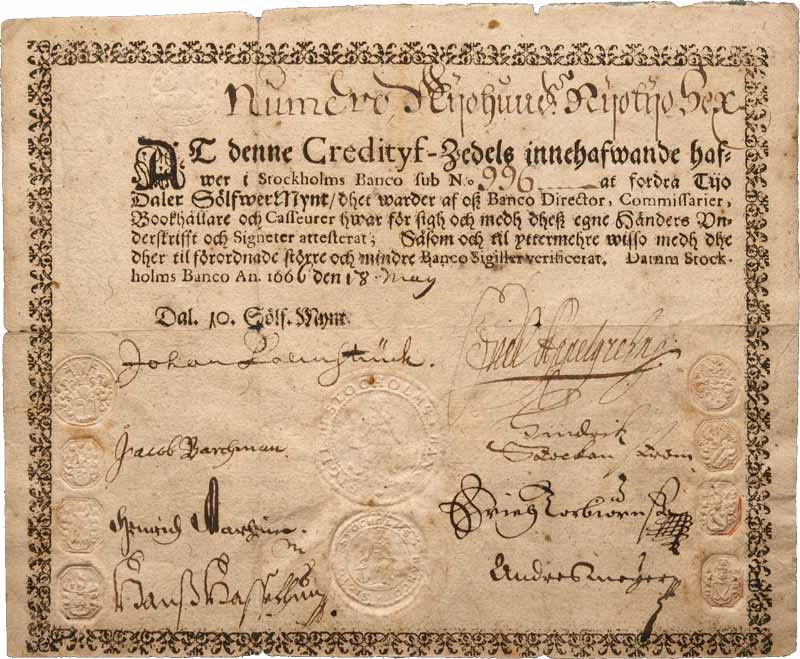 Numero Nijohund. Nijotijo Sex
AT denne Credityf-Zedels innehafwande haf-
wer i Stockholms Banco sub No. 996 at fordra Tijo
Daler Sölfwer Mynt/ dhet warder af oß Banco Director, Commissarier,
Bookhållare och Casseurer hwar för sigh och medh dheß egne Händers Vn-
derskrifft och Signeter attesterat; Såsom och til yttermehre wisso medh dhe
dher til förordnade större och mindre Banco Sigiller verificerat. Datum Stock-
holms Banco An. 1666 den 18 May
Dal. 10. Sölf. Mynt.
Johan Palmstruck.
Jacob Barchman
Hindrik
Henrich
Hanß
Andres Meyer
STOCKHOLMS